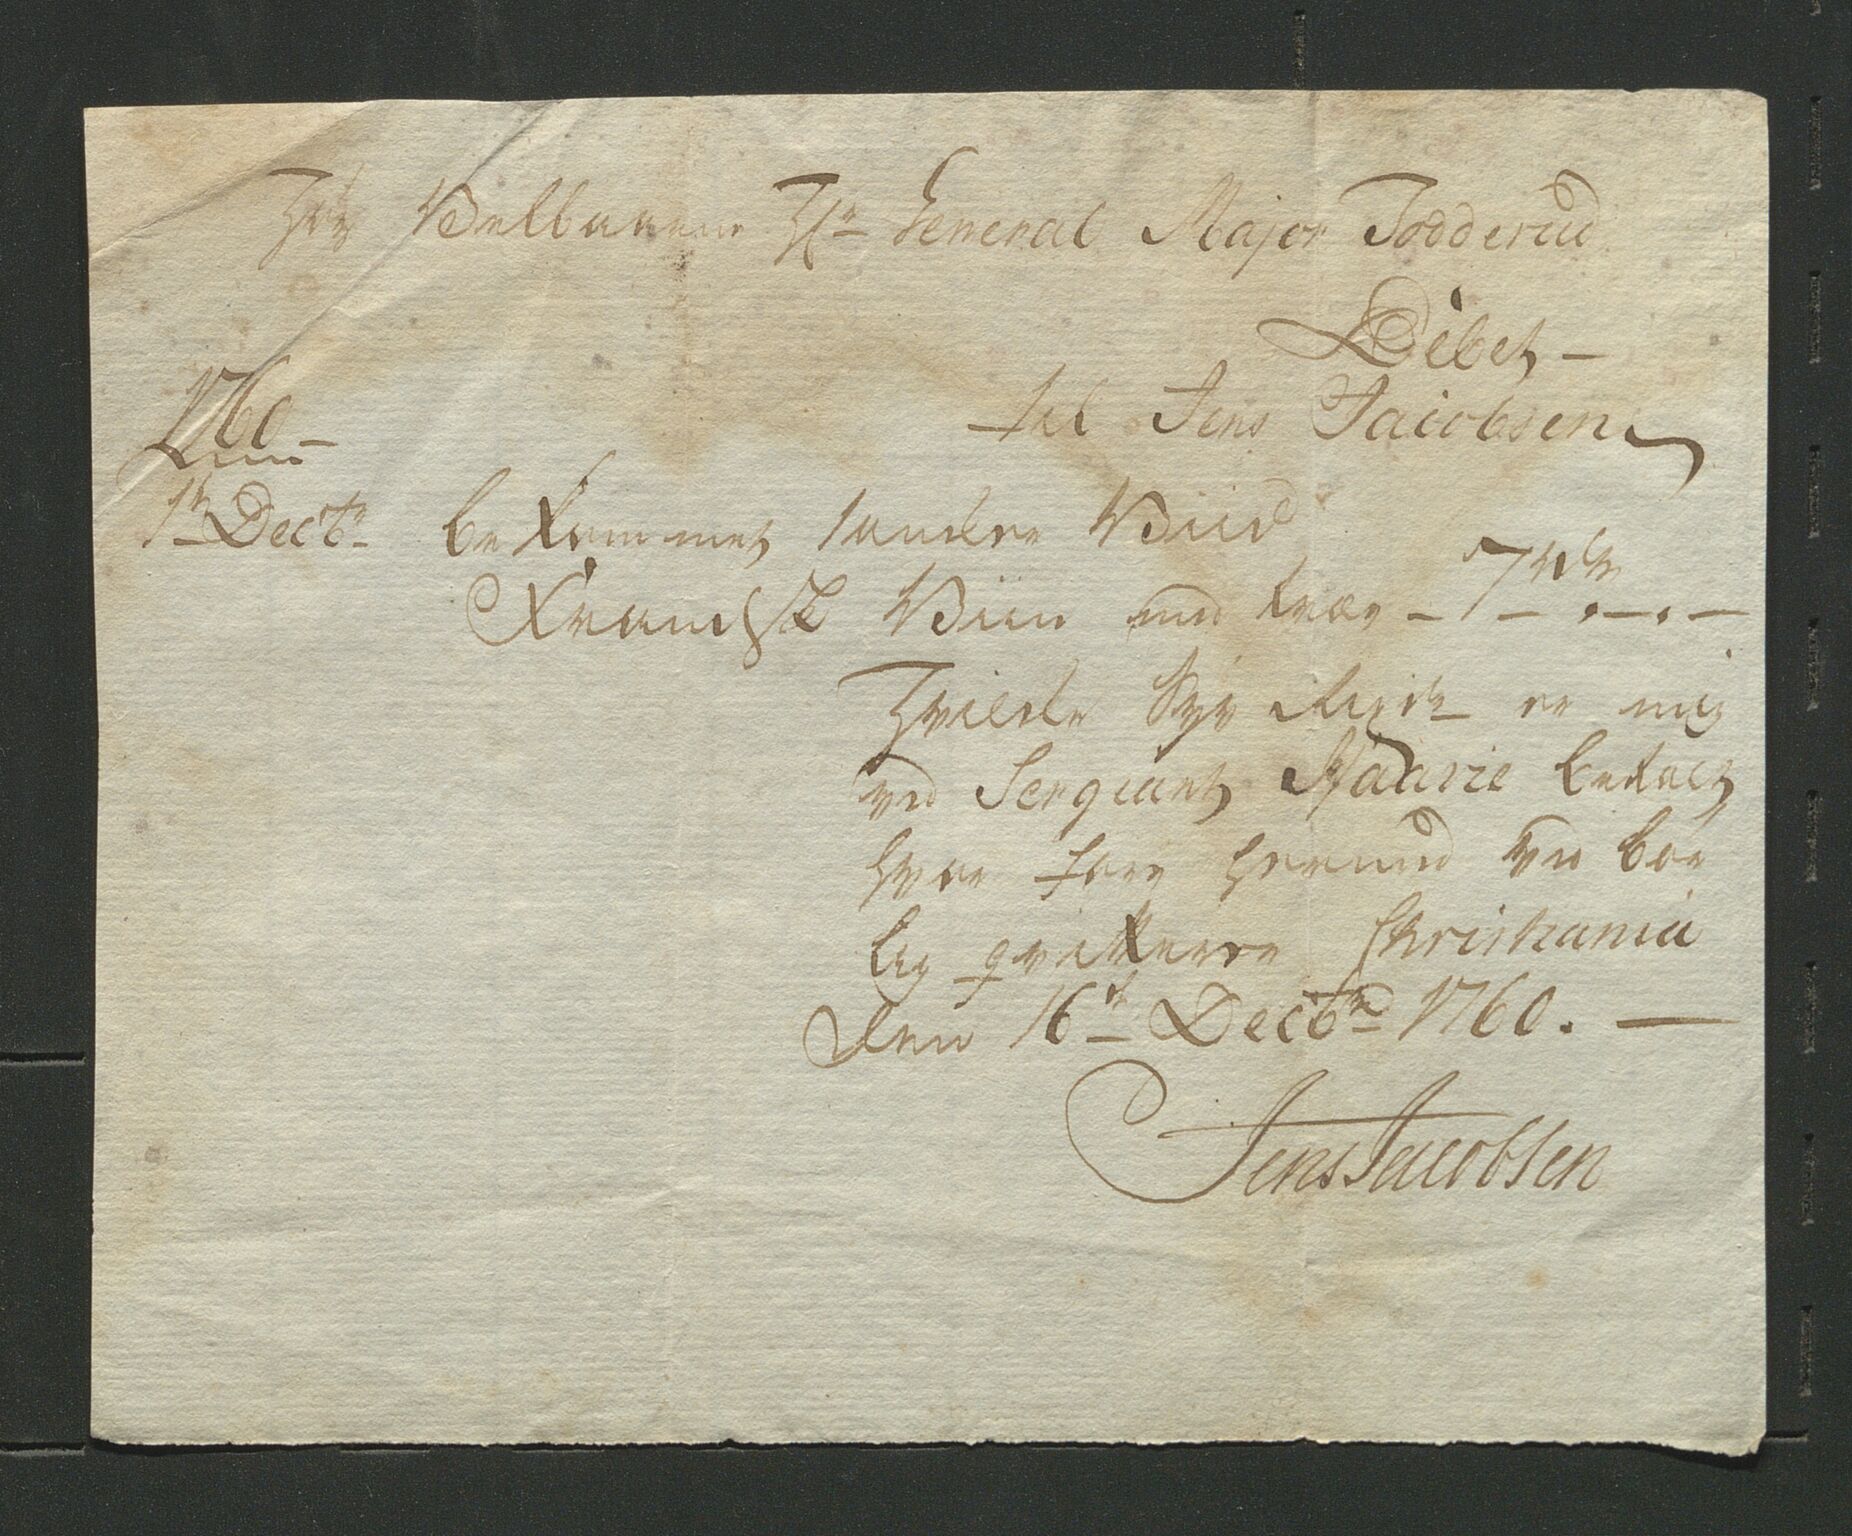 Høy Velbaarne Hr General Major Todderud
Debet –
til Jens Jacobsen
1760 –
1te Dectr bekommet 1 anckr Viid
Frandsk Viin med træe – 7 rdr – . – . –
Hvilcke Syv Rixdr er mig
ved Sergiant Haavie betalt
hvor fore hermed ved bør
lig qvitterer Christiania
den 16te Decbr 1760. –
Jens Jacobsen